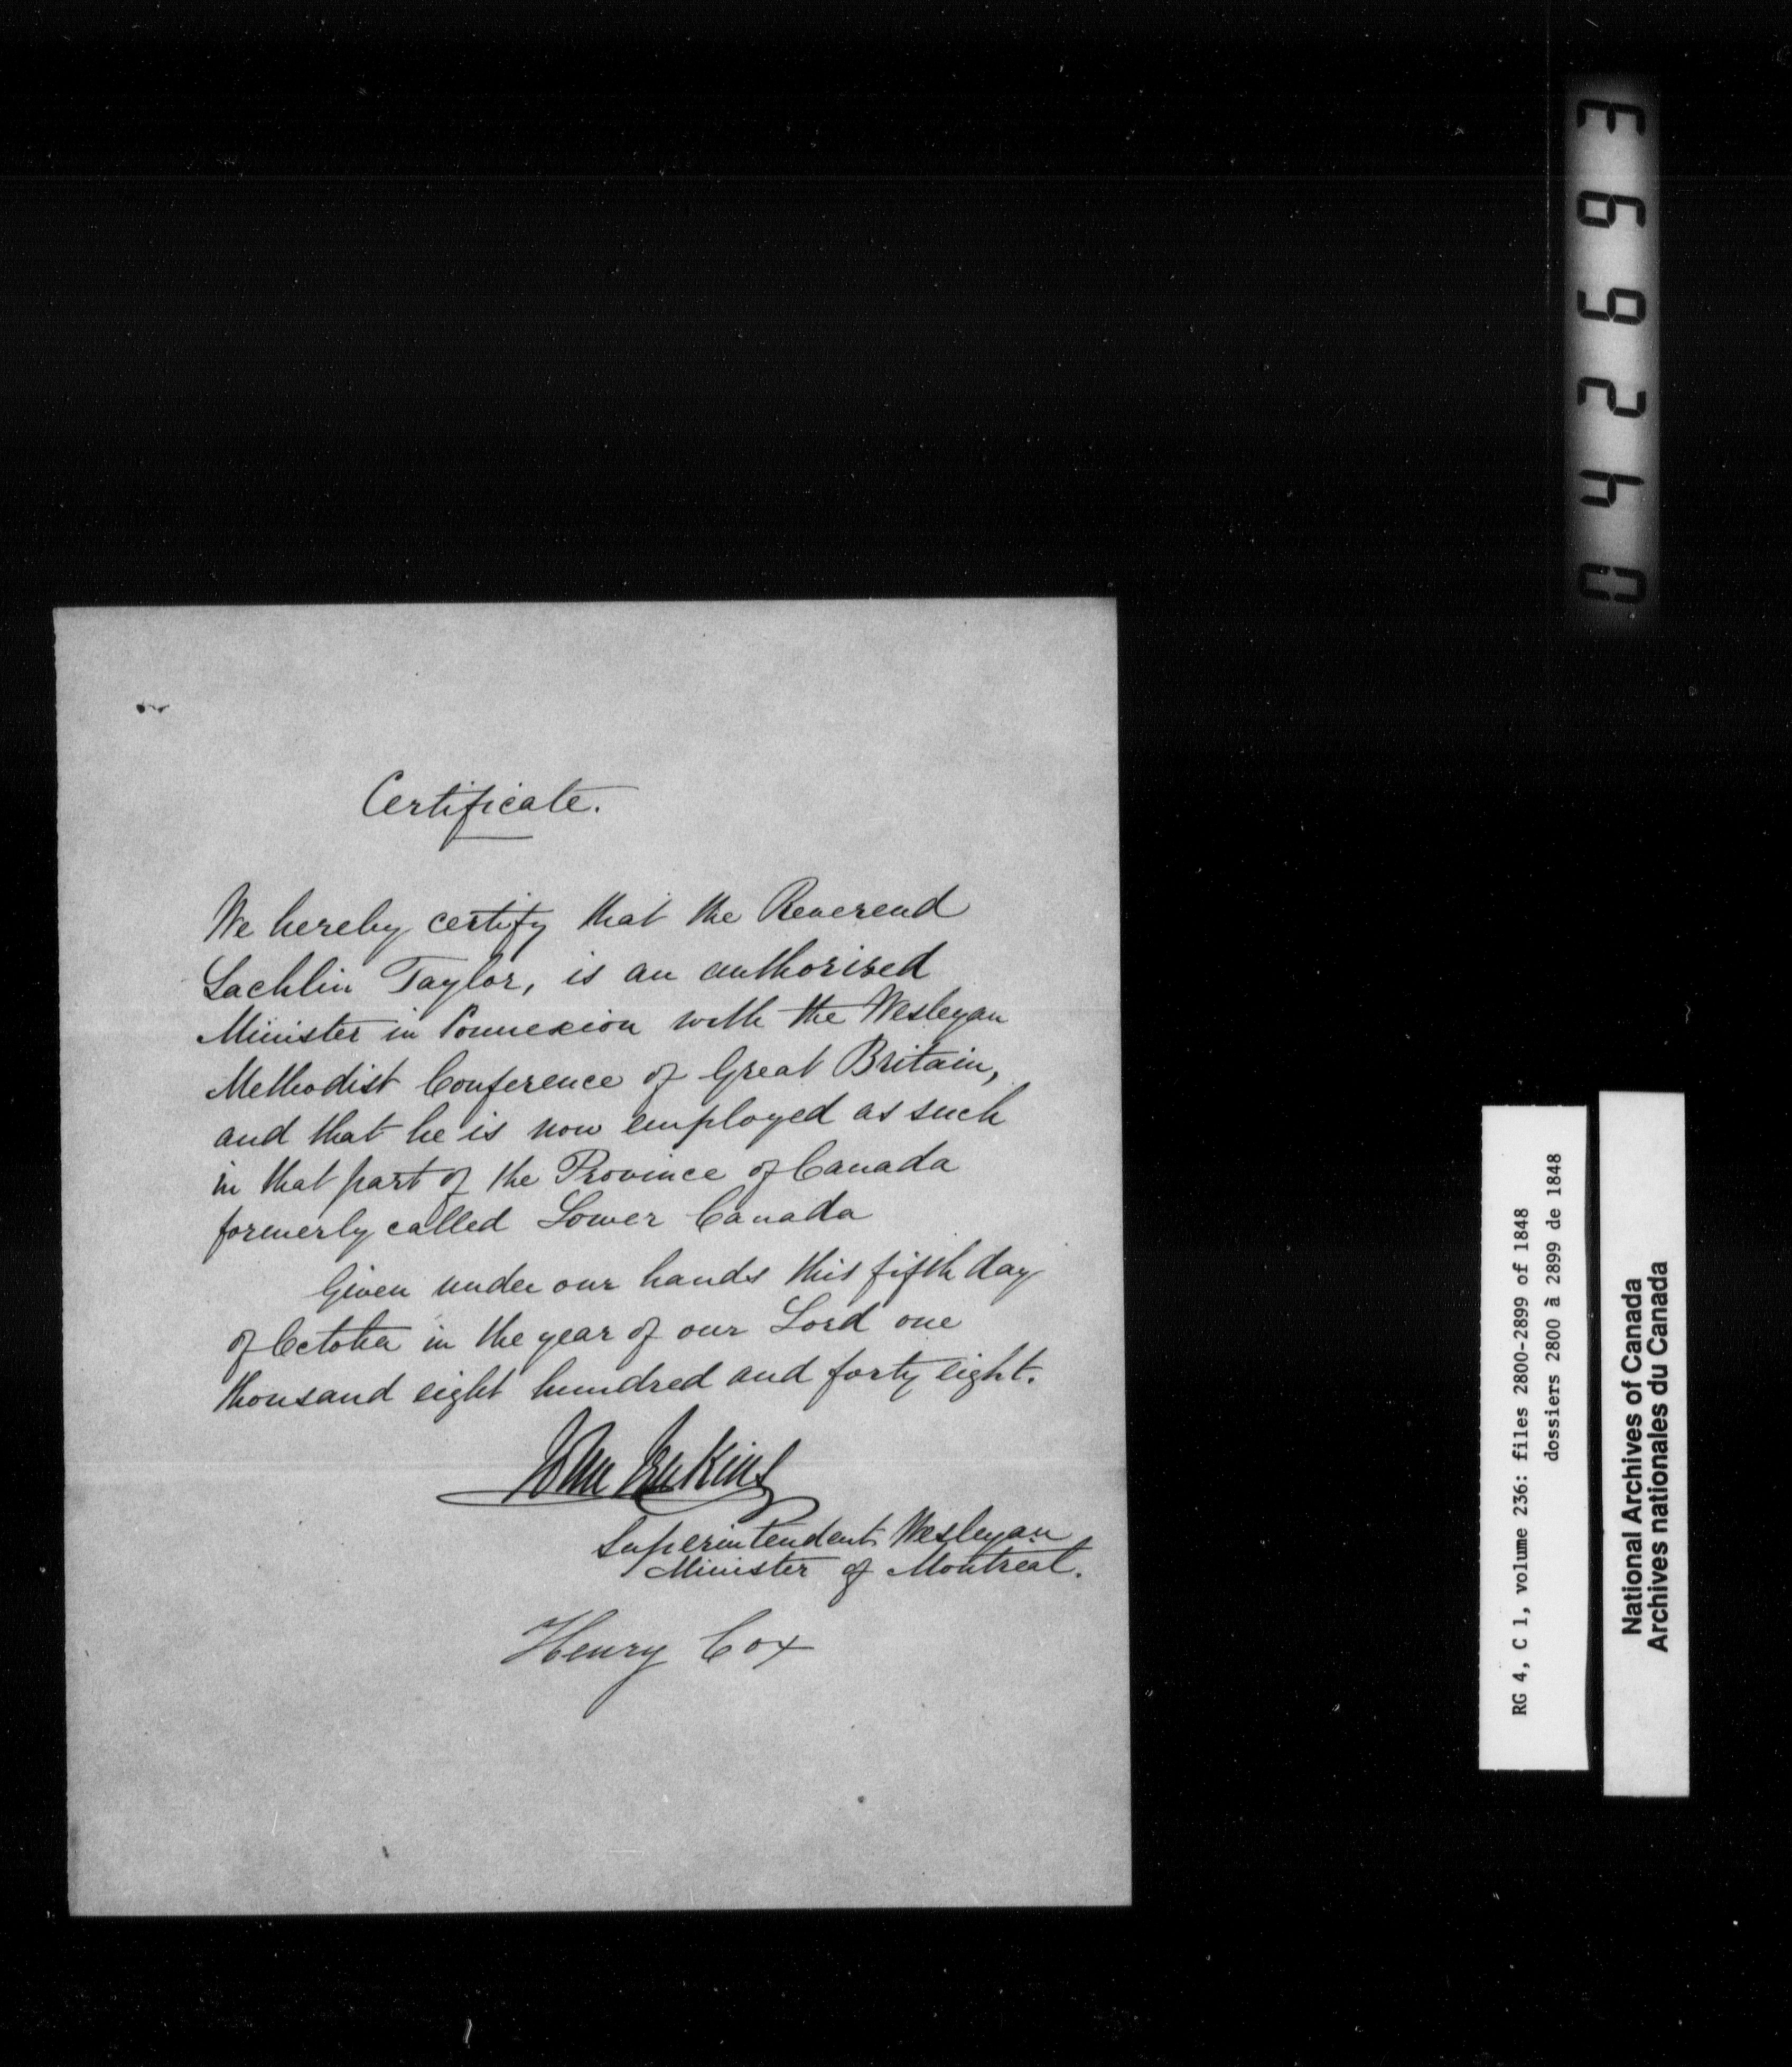 Certificate.
We hereby certify that the Reverend
Lachlin Taylor, is an authorised
Minister in Connexion with the Wesleyan
Methodist Conference of Great Britain,
and that he is now employed as such
in that part of the Province of Canada
formerly called Lower Canada
Given under our hands this fifth day
of October in the year of our Lord one
thousand eight hundred and forty eight.
John Jenkins
Superintendent Wesleyan
Minister of Montreal.
Henry Cox
042693
RG 4, C 1, volume 236: files 2800-2899 of 1848
dossiers 2800 à 2899 de 1848
National Archives of Canada
Archives nationales du Canada